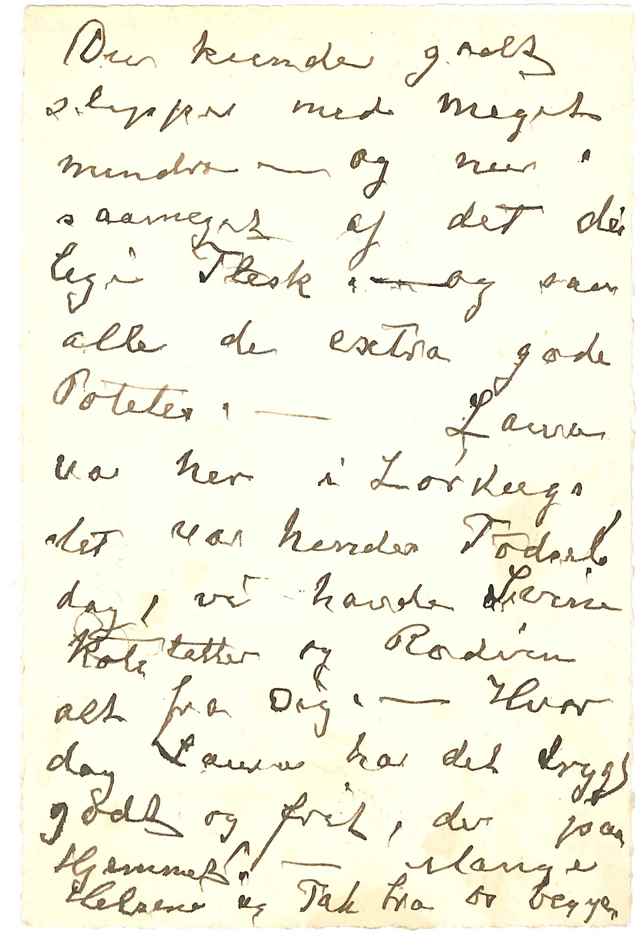 Du kunde godt
slippe med meget
mindre — og nu i
saameget af det dei
lige Flesk. — og saa
alle de extra gode
Poteter. — Laura
va her i Lördags
det var hendes Födsels
dag, vi havde Svine
Koteletter og Rodvin
alt fra Dig. — Hvor
dag Laura har det trygt
godt og frit, der paa
Hjemmet. — Mange
Helsene og Tak fra os begge.